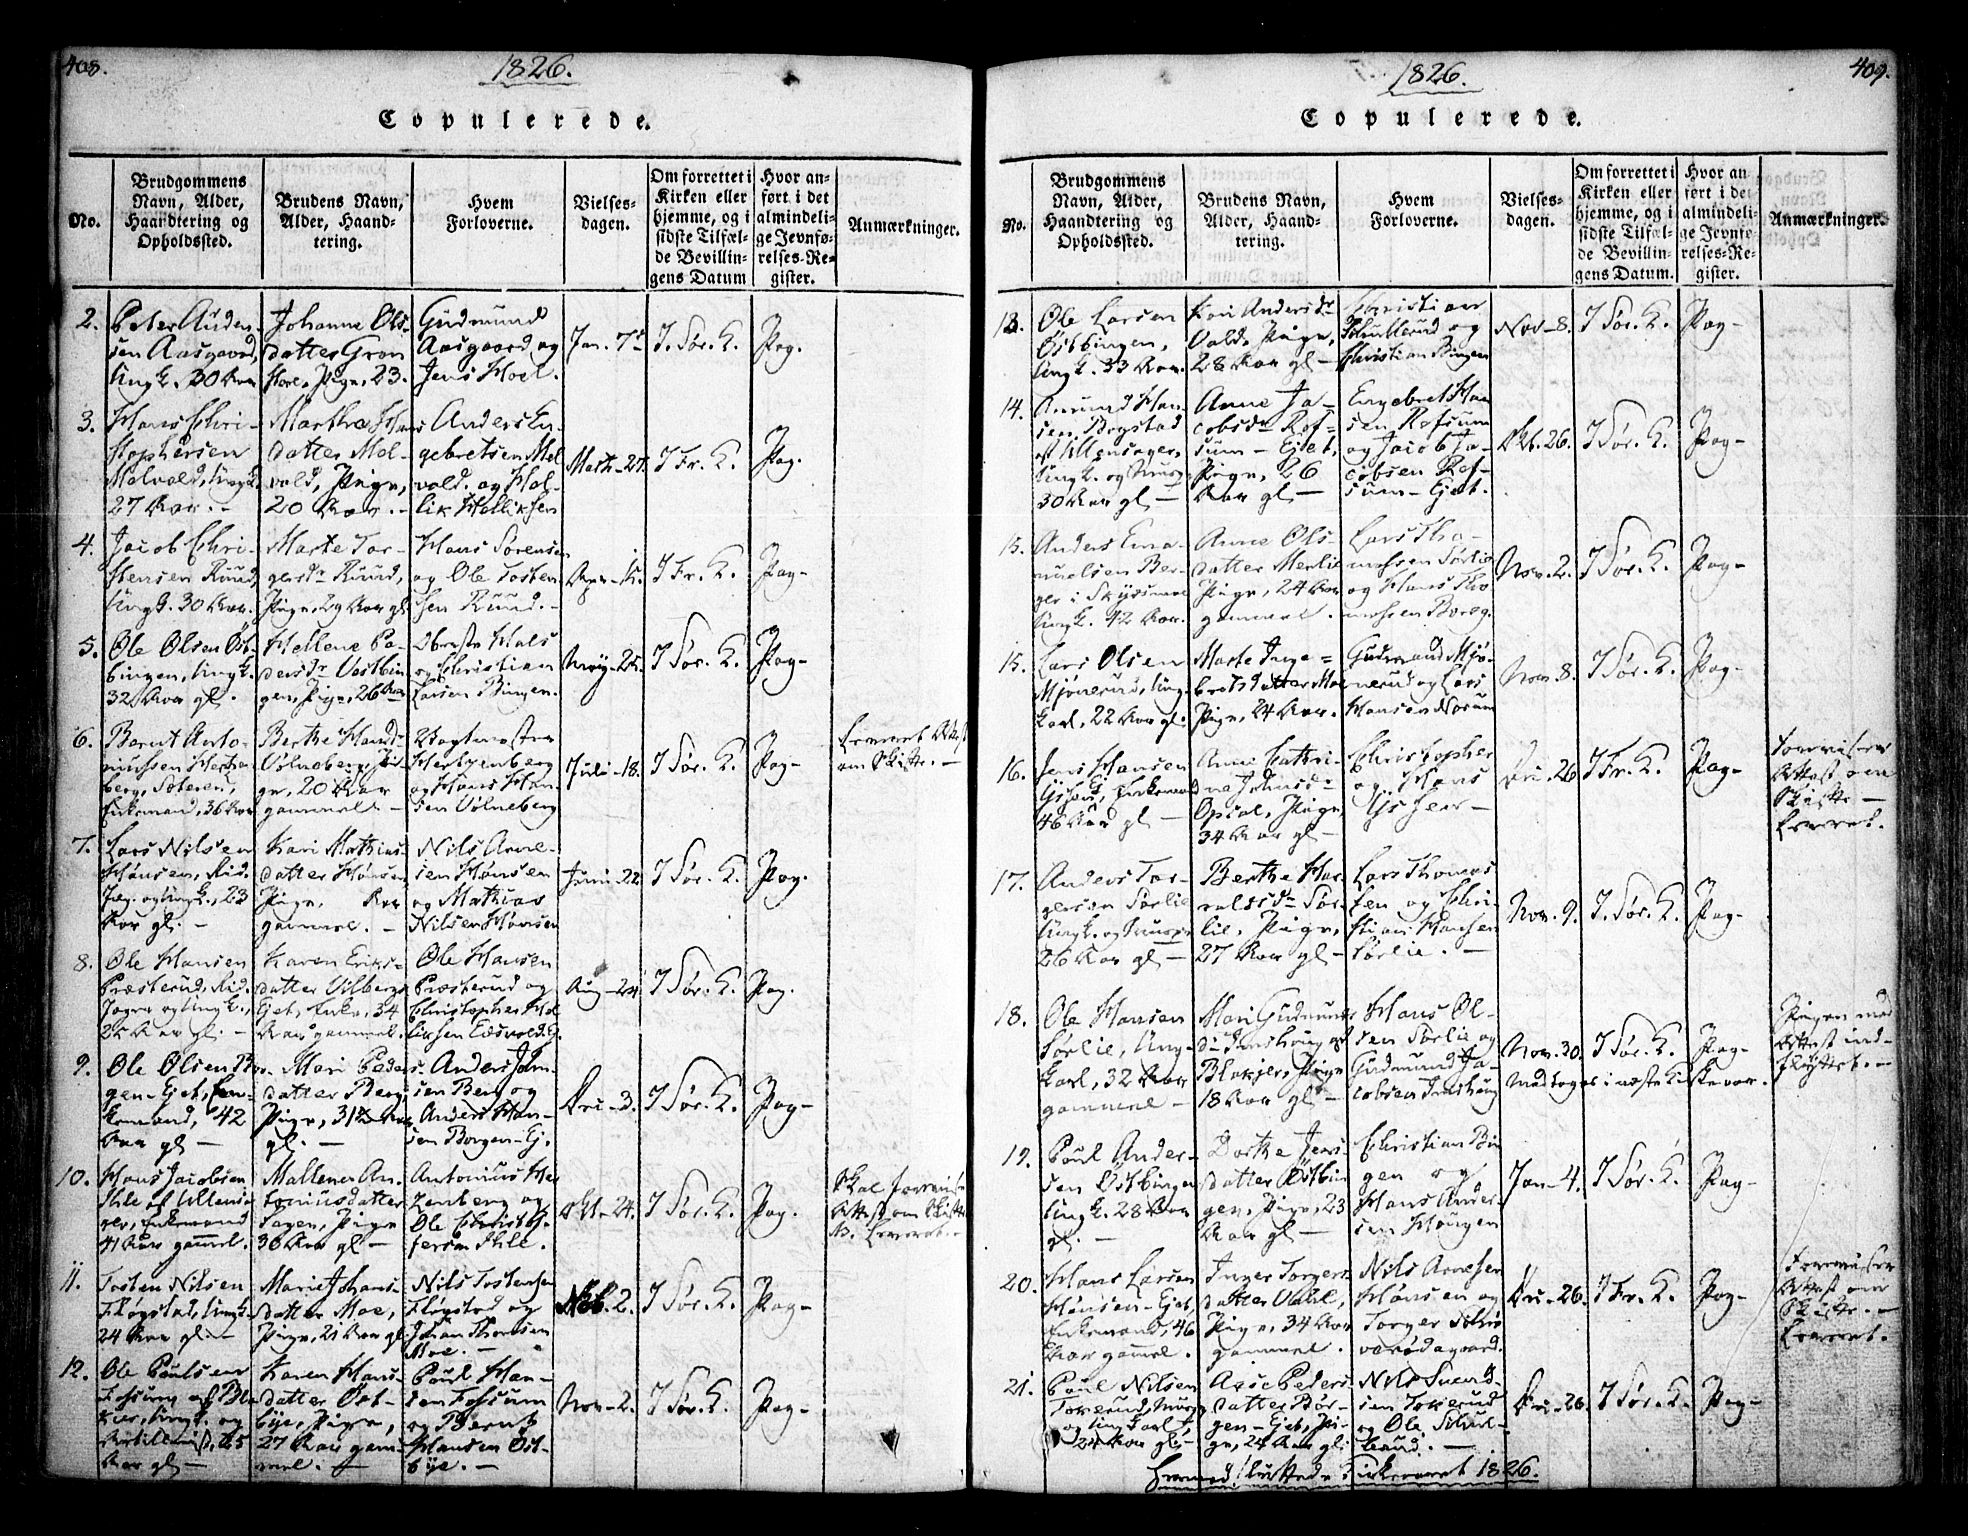 408.
1826.
Copulerede.
No.
Brudgommens Navn, Alder, Haandtering og Opholdssted.
Brudens Navn, Alder, Haandtering.
Hvem Forloverne.
Vielsesdagen.
Om forrettet i Kirken eller hjemme, og i sidste Tilfælde Bevillingens Datum
Hvor anført i det almindelige Jevnførelses-Register.
Anmærkninger.
2.
Peter Auden-
sen Aasgaard,
ungk. 30 Aar
Johanne Ols-
datter Gron
Hoel, Pige, 23.
Gudmund
Aasgaard og
Jens Hoel.
Jan. 7de
I Sør. K.
Pag.
3.
Hans Chri-
stophersen
Melvold, ungk.
27 Aar. -
Martha Hans
datter Mel-
vold, Pige,
20 Aar. -
Anders En-
gebretsen Mel
vold. og Hal-
lik Halliksen
Marts-27.
I Fr. K.
Pag.
4.
Jacob Chri-
stensen Ruud,
ungk. 30 Aar.
Marte Tor-
gersdr Ruud,
Pige, 29 Aar gl
Hans Sørensen
og Ole Tosten
sen Ruud. -
I Fr. K.
Pag-
5.
Ole Olsen Øst-
bingen, ungk.
32 Aar gl.
Hellene Pe-
dersdr Vestbin
gen, Pige, 26 Aar
og Christian
Larsen Bingen.
I Sør. K.
Pag-
6.
Bernt Anto-
niussen Hertzen-
berg, Soteren,
Enkemand, 36 Aar
Berthe Hansdr
Volneberg, Pi-
ge, 20 Aar
gammel -
Vagtmester
Hertzenberg
og Hans Han
sen Volneberg
Juli-18.
I Sør. K.
Pag-
Leveret Attest
om Skifte. -
7.
Lars Nilsen
Hønsen, Rid.
Jæg. og ungk., 23
Aar gl. -
Kari Mathias-
datter Hønsen,
Pige, Aar
gammel. -
Nils Arne-
sen Hønsen
og Mathias
Nilsen Hønsen
Juni-22.
I Sør. K.
Pag.
8.
Ole Hansen
Præsterud, Rid.
Jæger og ungk.,
25 Aar gl. -
Karen Eriks-
datter Vilbergs
Ejet, Enke, 34
Aar gammel.
Ole Hansen
Præsterud og
Christopher Hal
liksen
Aug-24
I Sør. K.
Pag.
9.
Ole Olsen Bor-
gen-Ejet, En-
kemand, 42
Aar gl -
Mari Peders-
datter Berg
Pige, 31 1/2 Aar
gl. -
Anders Jon-
sen Berg og
Anders Han-
sen Borgen-Ej.
Dec-3.
I Sør. K.
Pag-
10.
Hans Jacobsen
Ihle af Ullensa-
ger, Enkemand
41 Aar gammel.
Mallene An-
toniusdatter
Pige
36 Aar gl -
Antonius Her
zenberg og
Ole Christof-
fersen Ihle.
Okt-24.
I Sør. K.
Pag.
Skal forevise
Attest om Skifte
NB. Leveret. -
11.
Tosten Nilsen
Fløgstad, ungk.
24 Aar gl. -
Marie Johans-
datter Moe,
Pige, 21 Aar gl
Nils Tostensen
Fløgstad og
Johan Thoresen
Moe. -
2.
I Sør. K.
Pag-
12.
Ole Poulsen
Fossum af Bla
kier, ungk. og
25
Aar gl -
Karen Hans-
datter Øst-
bye, Pige,
27 Aar gam-
mel. -
Poul Han-
sen Fossum
og Bernt
Hansen Øst-
bye. -
Nov-2.
I Sør. K.
Pag-
409.
1826.
Copulerede.
No.
Brudgommens Navn, Alder, Haandtering og Opholdssted.
Brudens Navn, Alder, Haandtering.
Hvem Forloverne.
Vielsesdagen.
Om forrettet i Kirken eller hjemme, og i sidste Tilfælde Bevillingens Datum.
Hvor anført i det almindelige Jevnførelses-Register.
Anmærkninger.
13.
Ole Larsen
Østbingen,
ungk. 33 Aar.
Kari Andersdr
Vold, Pige,
28 Aar gl -
Christian
og
Christian Bingen
Nov-8.
I Sør. K.
Pag-
14.
Amund Han-
sen Bogstad
af Ullensager,
ungk. og
30 Aar gl -
Anne Ja-
cobsdr Rof-
sum-Ejet,
Pige, 26
Aar gl -
Engebret Han
sen Rofsum
og Jacob Ja-
cobsen Rof-
sum-Ejet.
Okt. 26.
I Sør. K.
Pag-
15.
Anders Ema-
nuelsen Ber-
ger i
ungk. 42 Aar.
Anne Ols-
datter Merlie
Pige, 24 Aar
gammel.
Lars Tho-
mesen Sørlie
og Hans Tho
mesen
Nov. 2.
I Sør. K.
Pag-
15.
Lars Olsen
Mjønerud, ung-
karl, 22 Aar gl.
Marte Inge-
bretsdatter Moe
Pige, 24 Aar.
Gudmund Mjø-
nerud og Lars
Hansen Norum
Nov. 8.
I Sør. K.
Pag-
16.
Jens Hansen
Enkemand
46 Aar gl -
Anne Cathri-
ne Johnsdr
Opsal, Pige,
34 Aar gl -
Christopher
og Hans
Dec-26
I Fr. K.
Pag-
Forevises
Attest om
Skifte -
Leveret.
17.
Anders Tor-
gersen Sørlie
ungk. og
26 Aar gl -
Berthe Har-
raldsdr Sør-
lie, Pige,
27 Aar gl -
Lars Thomes
sen og Chri-
stian Hansen
Sørlie. -
Nov. 9.
I Sør. K.
Pag-
18.
Ole Hansen
Sørlie, Ung-
karl, 32 Aar
gammel -
Mari Gudmunds
dr
Blakjer, Pige
18 Aar gl -
Hans Ol-
sen Sørlie og
Gudmund Ja-
cobsen
Nov. 30.
I Sør. K.
Pag-
Medtages i næste Kirkeaar.
Pigen med
Attest ind-
flyttet. -
19.
Poul Ander-
sen Østbingen
ungk. 28 Aar
gl. -
Dorthe Jens-
datter Østbin
gen, Pige, 23
Aar gl -
Christian Bin
gen og
Hans Ander-
sen Haugen
Jan-4.
I Sør. K.
Pag-
20.
Hans Larsen
Hønsen-Ejet,
Enkemand, 46
Aar gammel.
Inger Torgers-
datter Vahl,
Pige, 34 Aar
gammel.
Nils Arnesen
Hønsen og
Torger
Dec-26.
I Fr. K.
Pag-
Forevises
Attest om
Skifte. -
Leveret.
21.
Poul Nilsen
Tokerud,
og ungkarl,
24 Aar gl -
Aase Peders-
datter Bor-
gen-Ejet, Pi-
ge, 24 Aar gl.
Nils Svend-
sen Tokerud
og Ole Skul-
lerud. -
Dec-26.
I Sør. K.
Pag-
Hermed sluttede Kirkeaaret 1826.